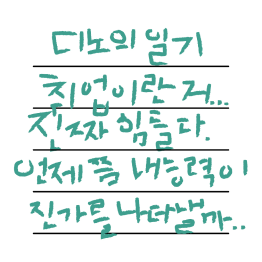 디노의 일기
취업이란 거...
진짜 힘들다.
언제쯤 내능력이
진가를 나타낼까..